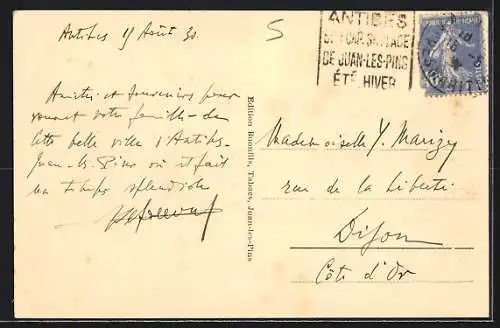 Antibes 15 Août 30.
5
ANTIBES
SON CAP. SA PLAGE
DE JUAN-LES-PINS
ÉTÉ. HIVER
Amitiés et souvenirs pour
vous et votre famille. de
Cette belle ville d'Antibes-
Juan-les-Pins où il fait
un temps splendide
Edition Bonnifla, Tabacs, Juan-les-Pins
Mademoiselle Y. Marigy
rue de la Liberté
Dijon
Côte d'Or